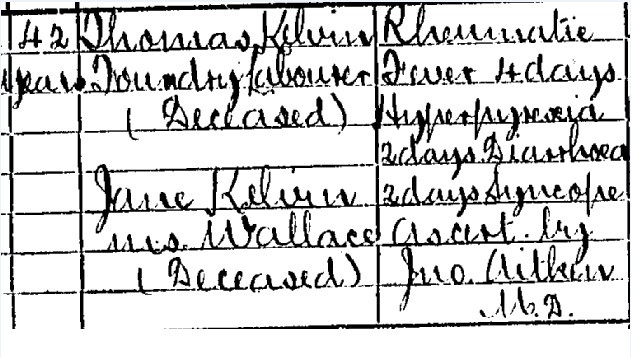 42 Thomas Kelvin Rheumatic
years Foundry Labourer Fever 4 days
(Deceased) Hyperpyrexia
2 days Diarrhoea
Jane Kelvin 2 days Syncope
m.s. Wallace as cert. by
(Deceased) Jno. Aitken
M.D.